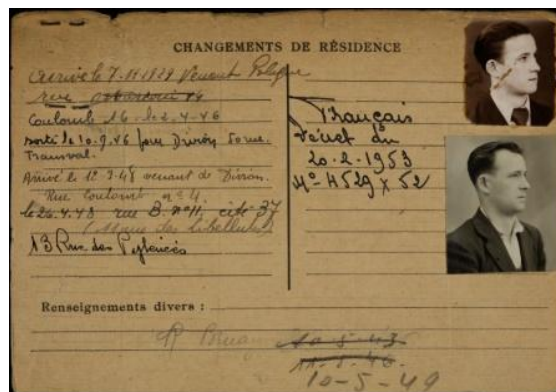 CHANGEMENTS DE RÉSIDENCE
Arrivé le 7.11.1929 Venant Pologne
rue
Coulomb 16 - le 2.4.46
sorti le 10.9.46 pour Divion 50 rue
Transval.
Arrivé le 12.3.48 venant de Divion.
Rue Coulomb n° 4.
le 26.4.48 rue B. n° 11, cité 37
(Rue des Libellules)
13 Rue des Pyrénées
Français
Décret du
20-2-1953
N° 4529 X 52
Renseignements divers :
R
10-5-43
11-5-46
10-5-49